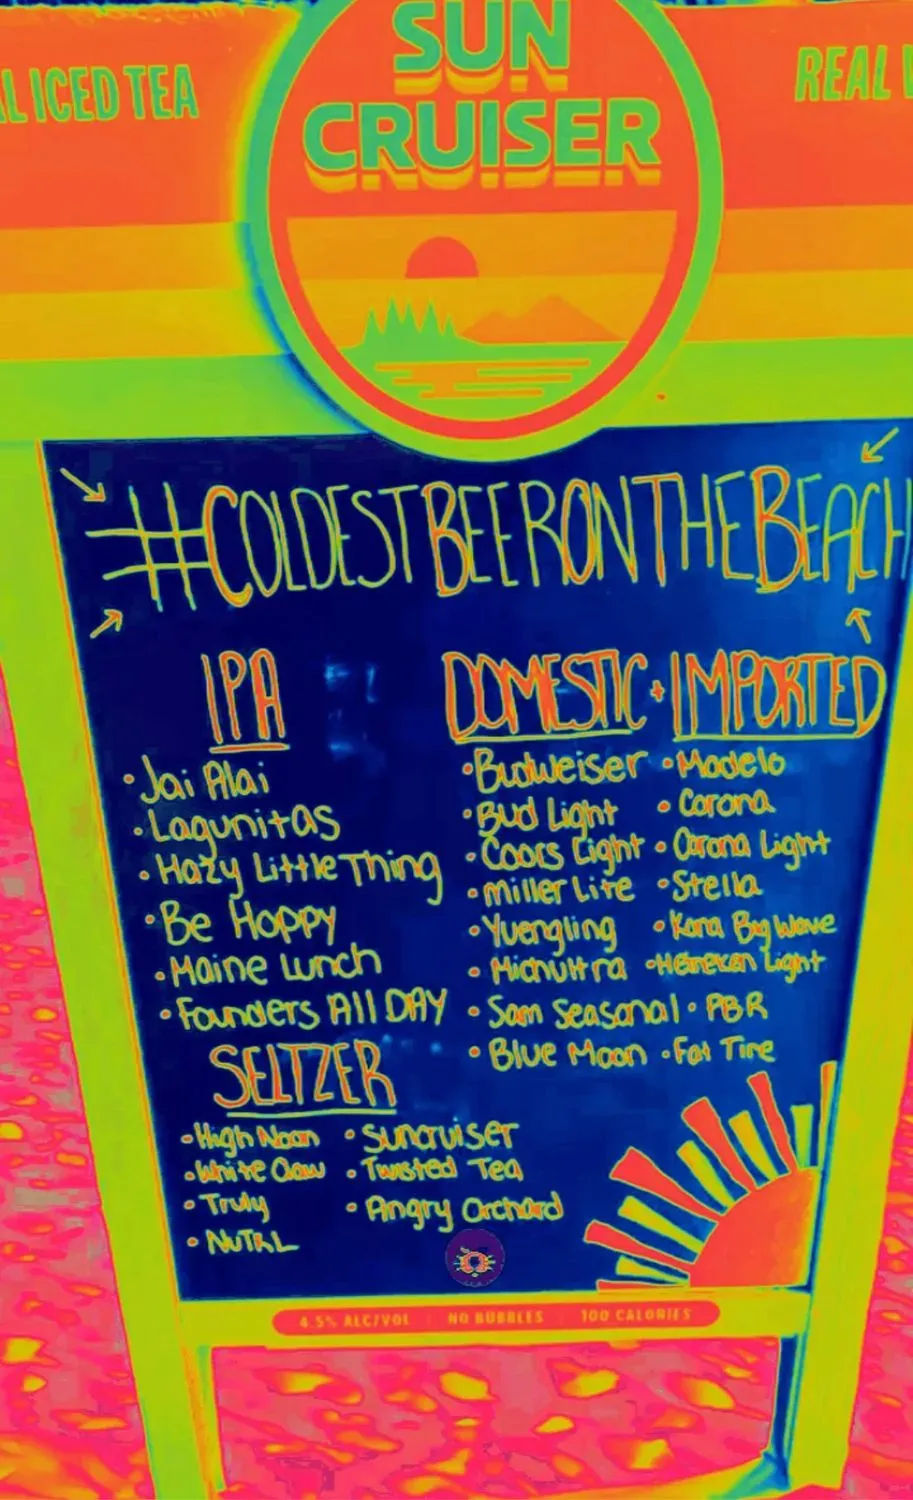 SUN
CRUISER
L ICED TEA
REAL
#COLDESTBEERONTHEBEACH
IPA
• Jai Alai
• Lagunitas
• Hazy Little Thing
• Be Hoppy
• Maine Lunch
• Founders All DAY
DOMESTIC + IMPORTED
• Budweiser
• Bud Light
• Coors Light
• Miller Lite
• Yuengling
• Mich Ultra
• Sam Seasonal
• Blue Moon
• Modelo
• Corona
• Corona Light
• Stella
• Kona Big Wave
• Heineken Light
• PBR
• Fat Tire
SELTZER
• High Noon
• White Claw
• Truly
• NUTRL
• Suncruiser
• Twisted Tea
• Angry Orchard
4.5% ALC/VOL | NO BUBBLES | 100 CALORIES